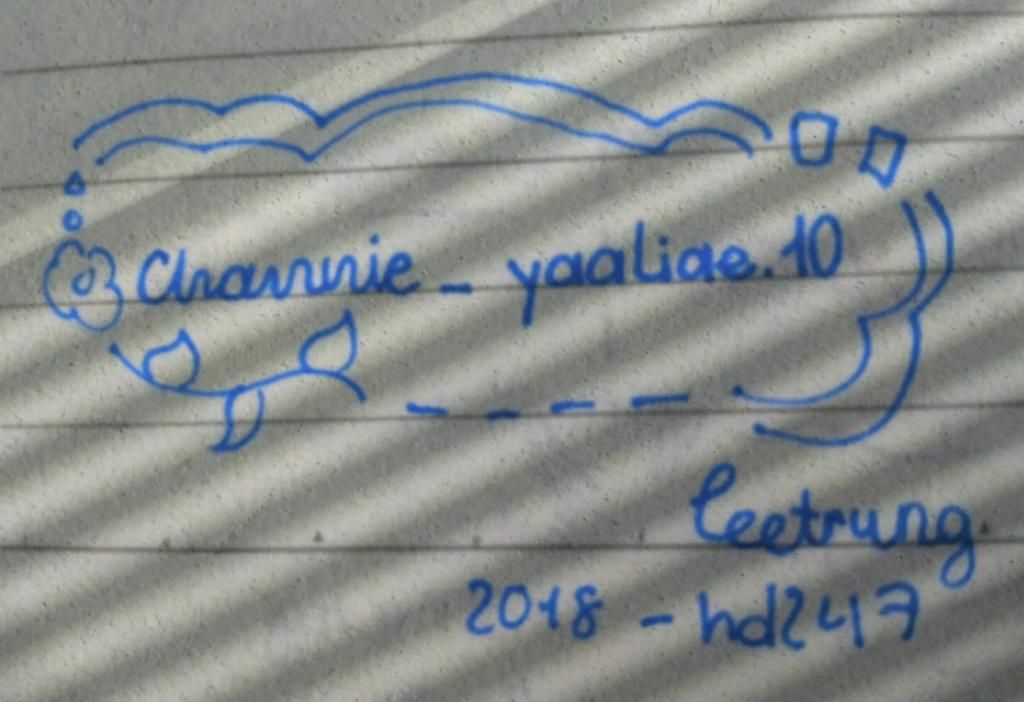 Charnnie _ yaaliae.10
leetrung
2018 - hd247